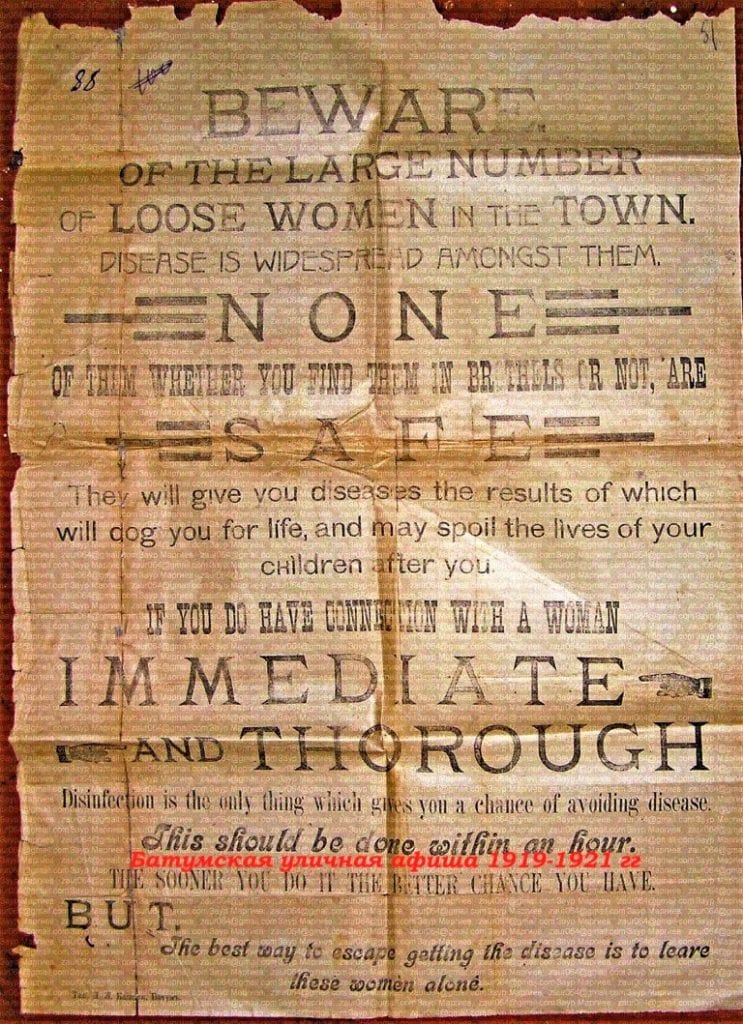 88
51
BEWARE.
OF THE LARGE NUMBER
OF LOOSE WOMEN IN THE TOWN.
DISEASE IS WIDESPREAD AMONGST THEM.
NONE
OF THEM WHETHER YOU FIND THEM IN BROTHELS OR NOT, ARE
SAFE
They will give you diseases the results of which
will dog you for life, and may spoil the lives of your
children after you.
IF YOU DO HAVE CONNECTION WITH A WOMAN
IMMEDIATE
AND THOROUGH
Disinfection is the only thing which gives you a chance of avoiding disease.
This should be done within an hour.
Батумская уличная афиша 1919-1921 гг
THE SOONER YOU DO IT THE BETTER CHANCE YOU HAVE.
BUT.
The best way to escape getting the disease is to leare
these women alone.